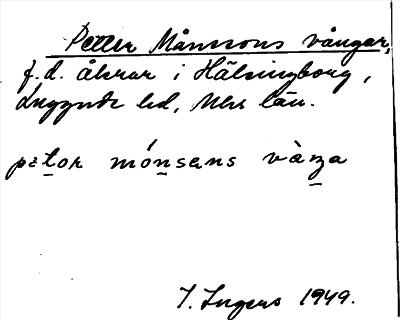 Petter Månssons vångar,
f.d. åkrar i Hälsingborg,
Luggude hd, Mlhs län.
petər mónsəns vàŋa
I. Ingers 1949.